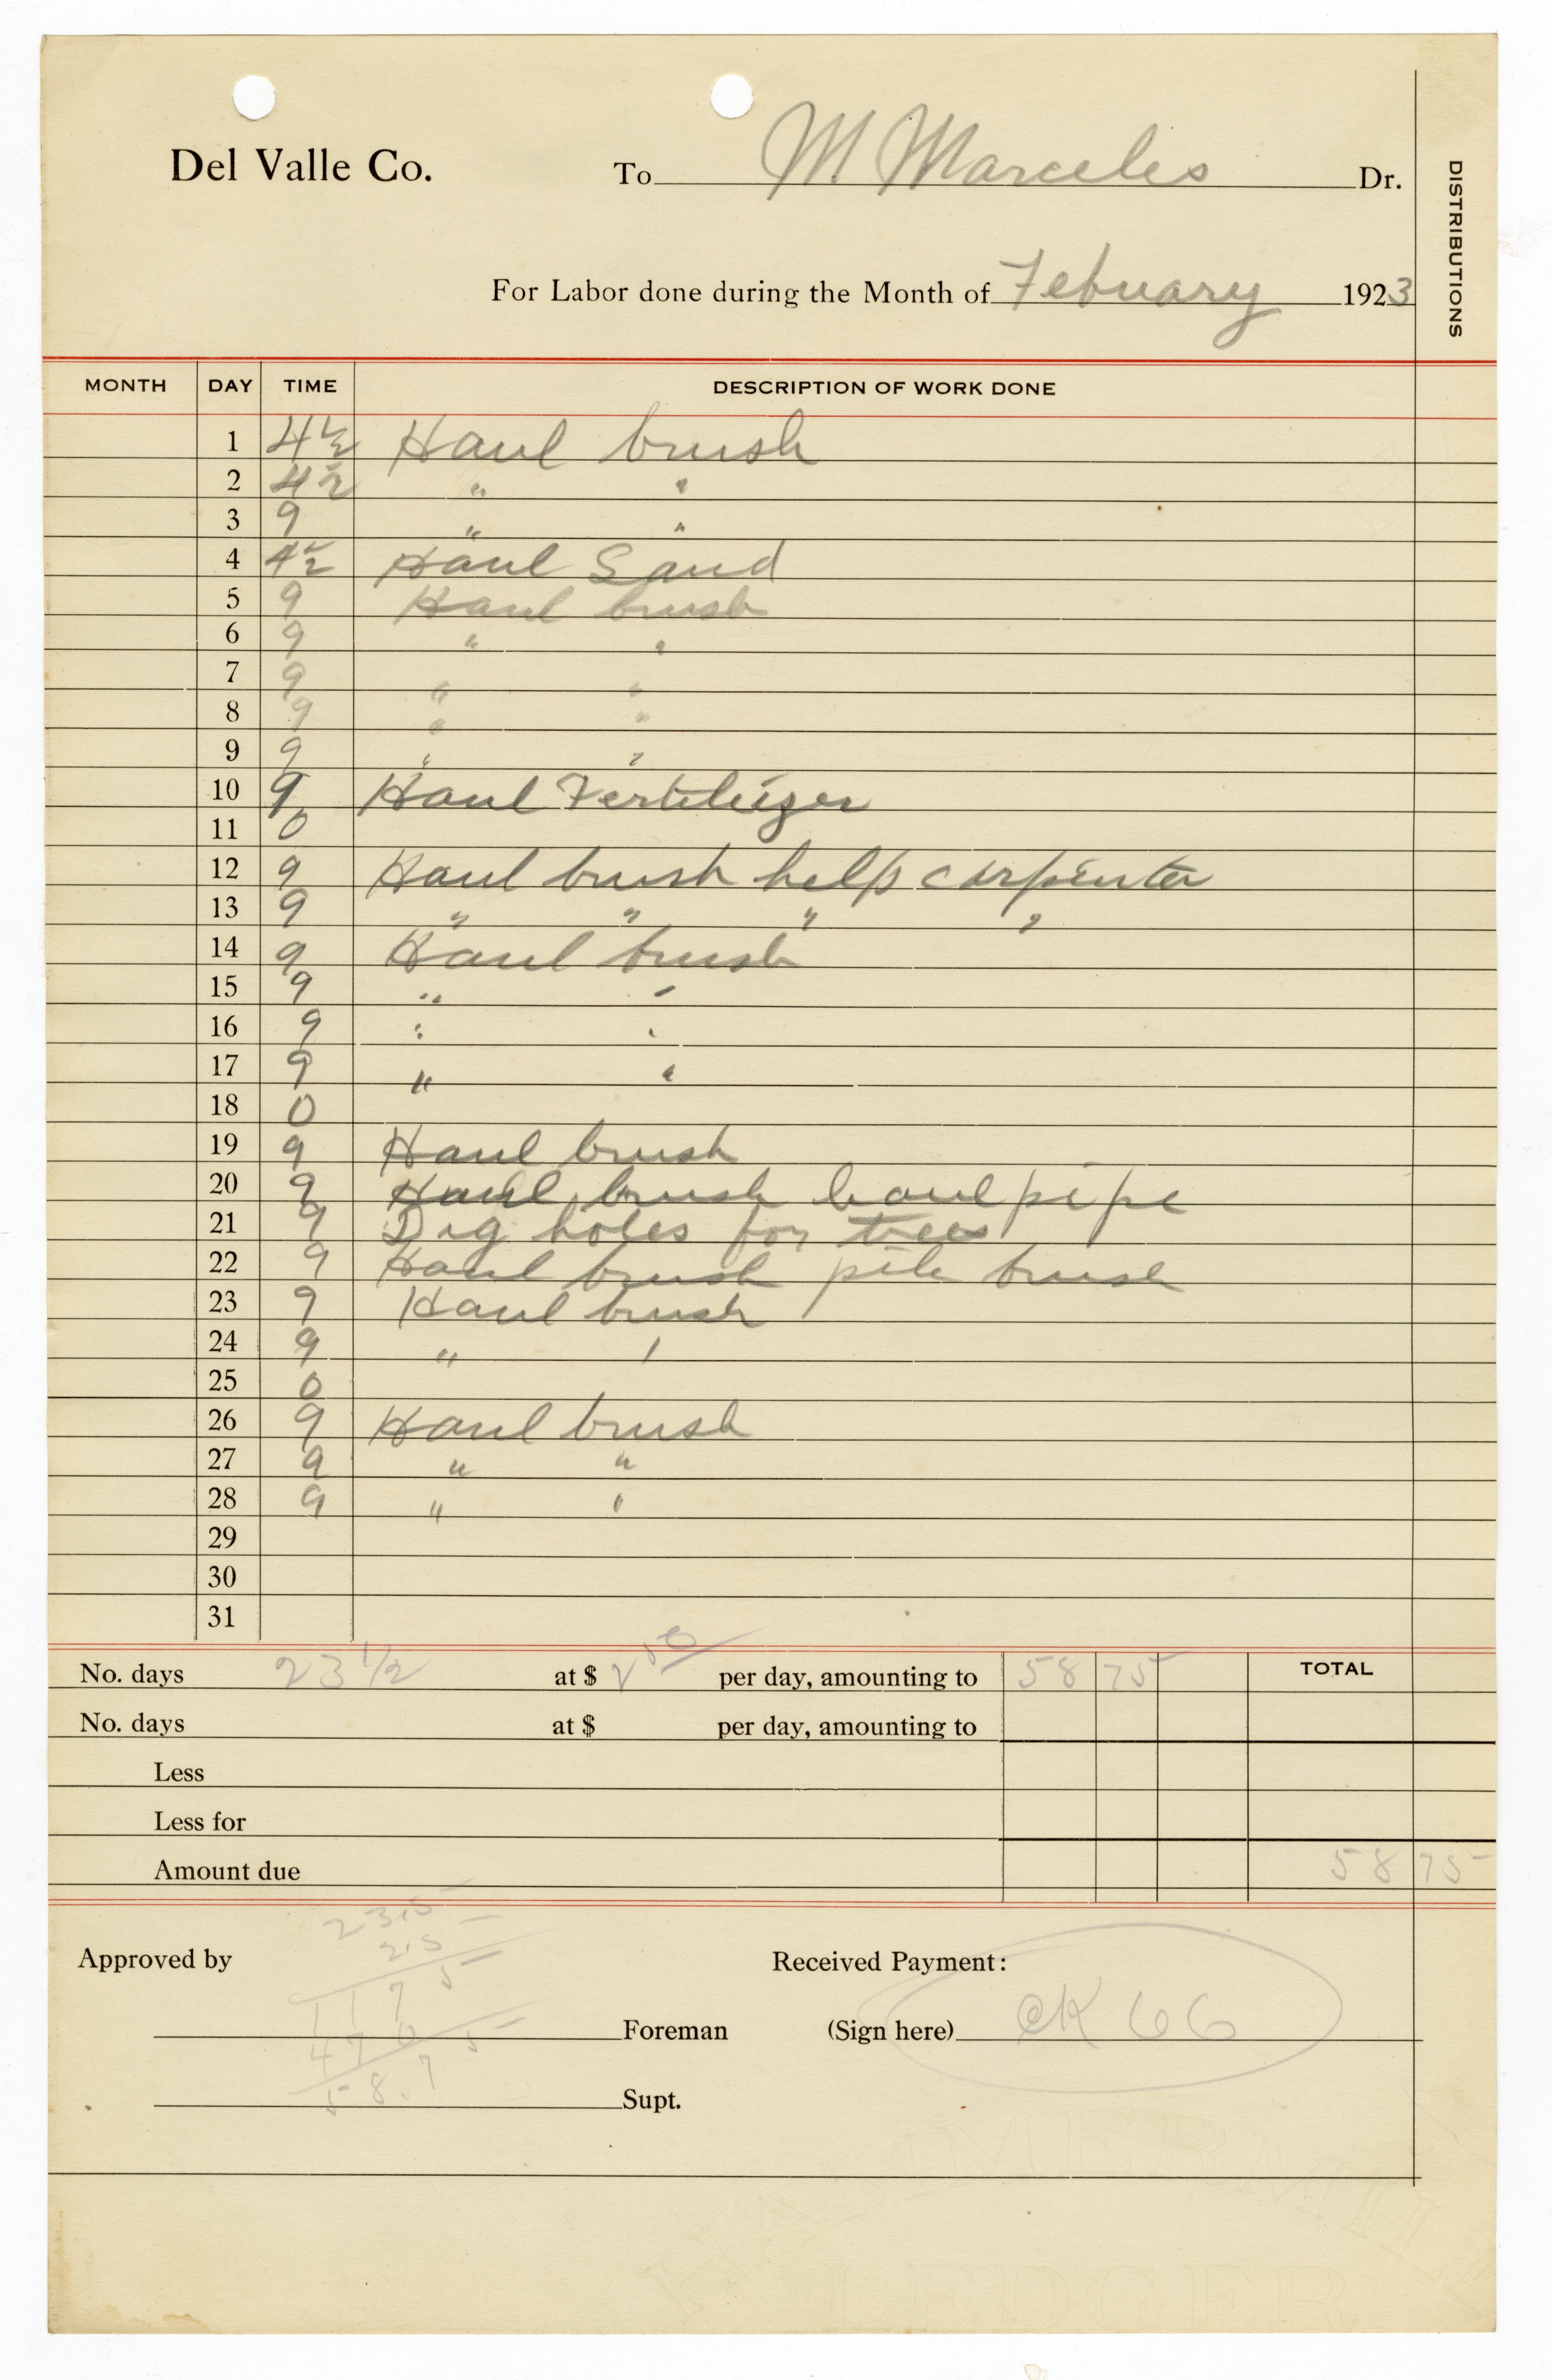 Del Valle Co. To M Marceles Dr.
DISTRIBUTIONS
For Labor done during the Month of Febuary 1923
MONTH DAY TIME DESCRIPTION OF WORK DONE
1 4½ Haul brush
2 4½ " "
3 9 " "
4 4½ Haul Sand
5 9 Haul brush
6 9 " "
7 9 " "
8 9 " "
9 9 " "
10 9 Haul Fertilizer
11 0
12 9 Haul brush help carpenter
13 9 " " " "
14 9 Haul brush
15 9 " "
16 9 " "
17 9 " "
18 0
19 9 Haul brush
20 9 Haul brush haul pipe
21 9 Dig holes for trees
22 9 Haul brush pile brush
23 9 Haul brush
24 9 " "
25 0
26 9 Haul brush
27 9 " "
28 9 " "
29
30
31
No. days 23 1/2 at $ 2 50 per day, amounting to 58 75 TOTAL
No. days at $ per day, amounting to
Less
Less for
Amount due 58 75
23.5
2.5
1175
470
58.75
Approved by Received Payment:
Foreman (Sign here) CK 66
Supt.
LEDGER